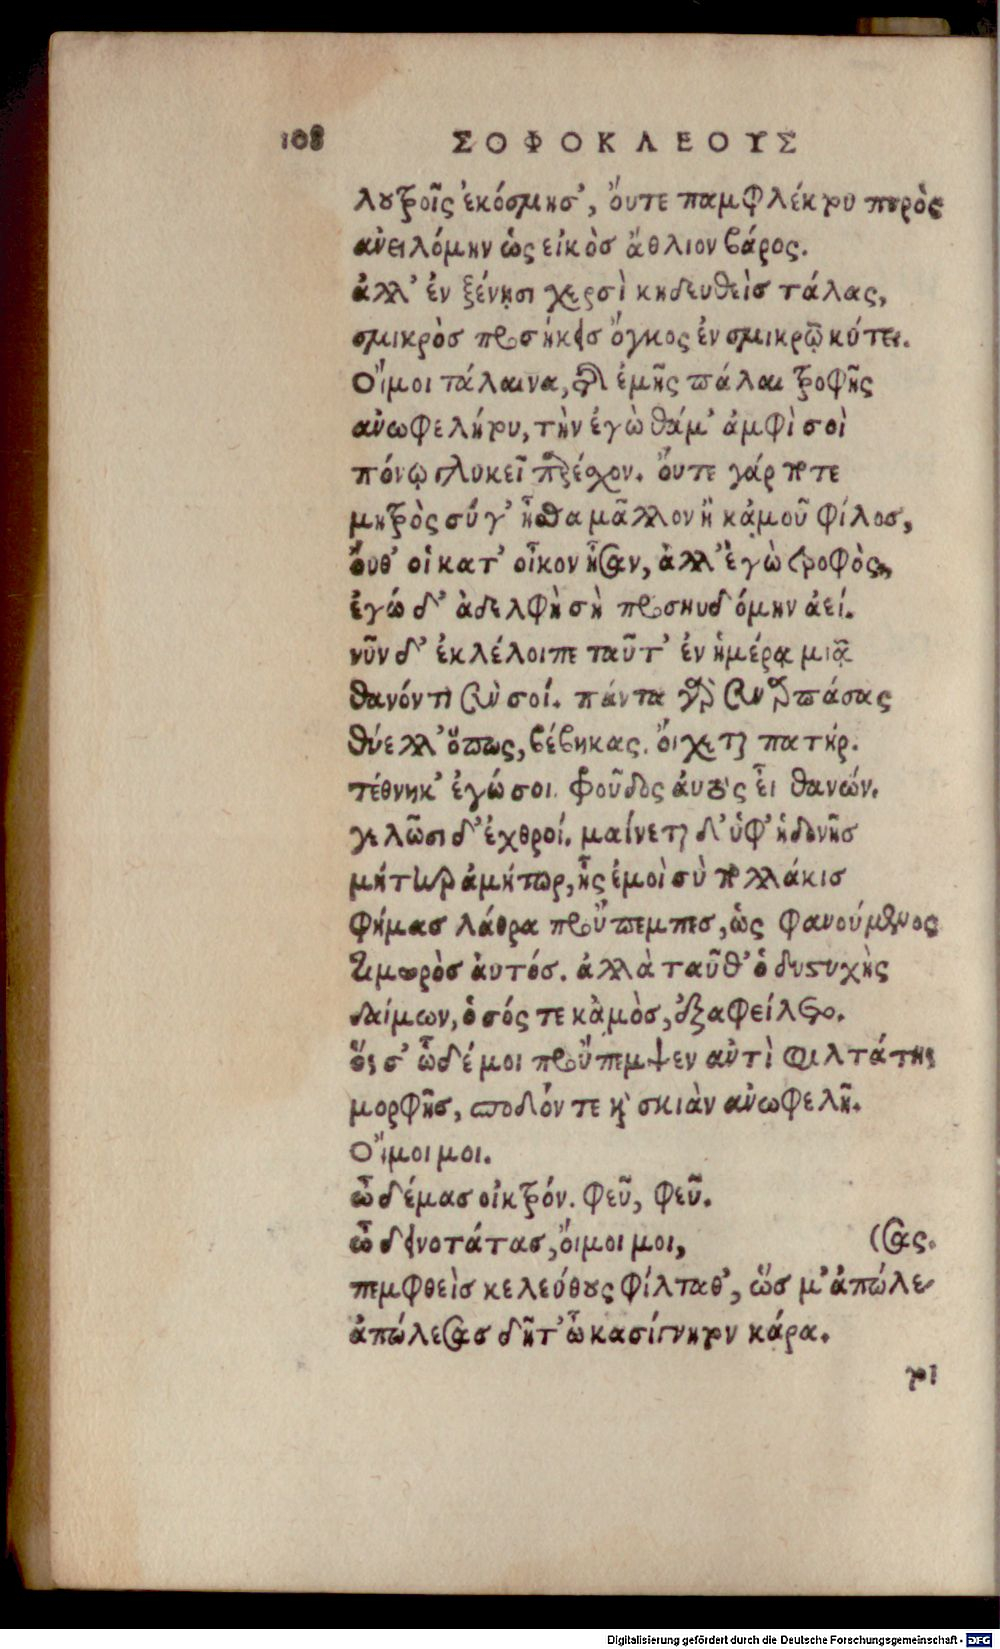 108 ΣΟΦΟΚΛΕΟΥΣ
λουτροῖς ἐκόσμησ', ὄυτε παμφλέκτου πυρὸς
ἀνειλόμην ὡς εἰκὸσ ἄθλιον βάρος.
ἀλλ' ἐν ξένῃσι χερσὶ κηδευθεὶσ τάλας,
σμικρὸσ προσήκεισ ὄγκος ἐν σμικρῷ κύτει.
Οἴμοι τάλαινα, τῆς ἐμῆς πάλαι τροφῆς
ἀνωφελήτου, τὴν ἐγὼ θάμ' ἀμφὶ σοὶ
πόνῳ γλυκεῖ παρέσχον. ὄυτε γάρ ποτε
μητρὸς σύ γ' ἦσθα μᾶλλον ἢ κἀμοῦ φίλοσ,
ὄυθ' οἱ κατ' οἶκον ἦσαν, ἀλλ' ἐγὼ τροφὸς,
ἐγώ δ' ἀδελφὴ σὴ προσηυδόμην ἀεί.
νῦν δ' ἐκλέλοιπε ταῦτ' ἐν ἡμέρᾳ μιᾷ
θανόντι σὺν σοί. πάντα γὰρ συναρπάσας
θύελλ' ὅπως, βέβηκας. ὄιχεται πατήρ.
τέθνηκ' ἐγώ σοι. φροῦδος ἀυτὸς εἶ θανών.
γελῶσι δ' ἐχθροί. μαίνεται δ' ὑφ' ἡδονῆσ
μήτηρ ἀμήτωρ, ἧς ἐμοὶ σὺ πολλάκισ
φήμασ λάθρα προὔπεμπεσ, ὡς φανούμενος
τιμωρὸσ ἀυτόσ. ἀλλὰ ταῦθ' ὁ δυστυχὴς
δαίμων, ὁ σός τε κἀμὸσ, ἐξαφείλετο.
ὅς σ' ὧδέ μοι προὔπεμψεν ἀντὶ φιλτάτης
μορφῆσ, σποδόν τε καὶ σκιὰν ἀνωφελῆ.
Οἴμοι μοι.
ὦ δέμασ οἰκτρόν. φεῦ, φεῦ.
ὦ δεινοτάτασ, ὄιμοι μοι, (σας.
πεμφθεὶσ κελεύθους φίλταθ', ὥσ μ' ἀπώλε
ἀπώλεσασ δῆτ' ὦ κασίγνητον κάρα.
τοι
Digitalisierung gefördert durch die Deutsche Forschungsgemeinschaft - DFG